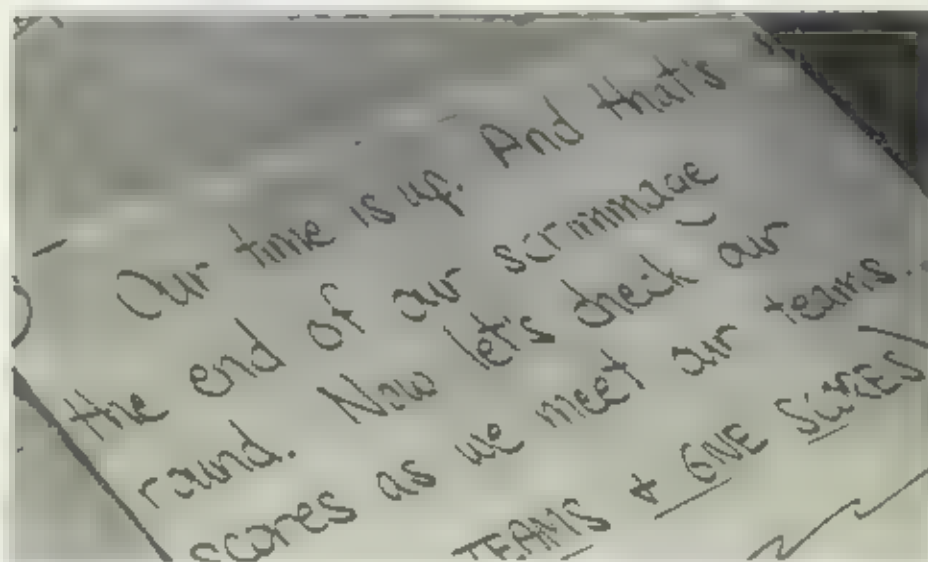 Our time is up. And that's
the end of our scrimmage
round. Now let's check our
scores as we meet our teams.
TEAMS + GIVE SCORES